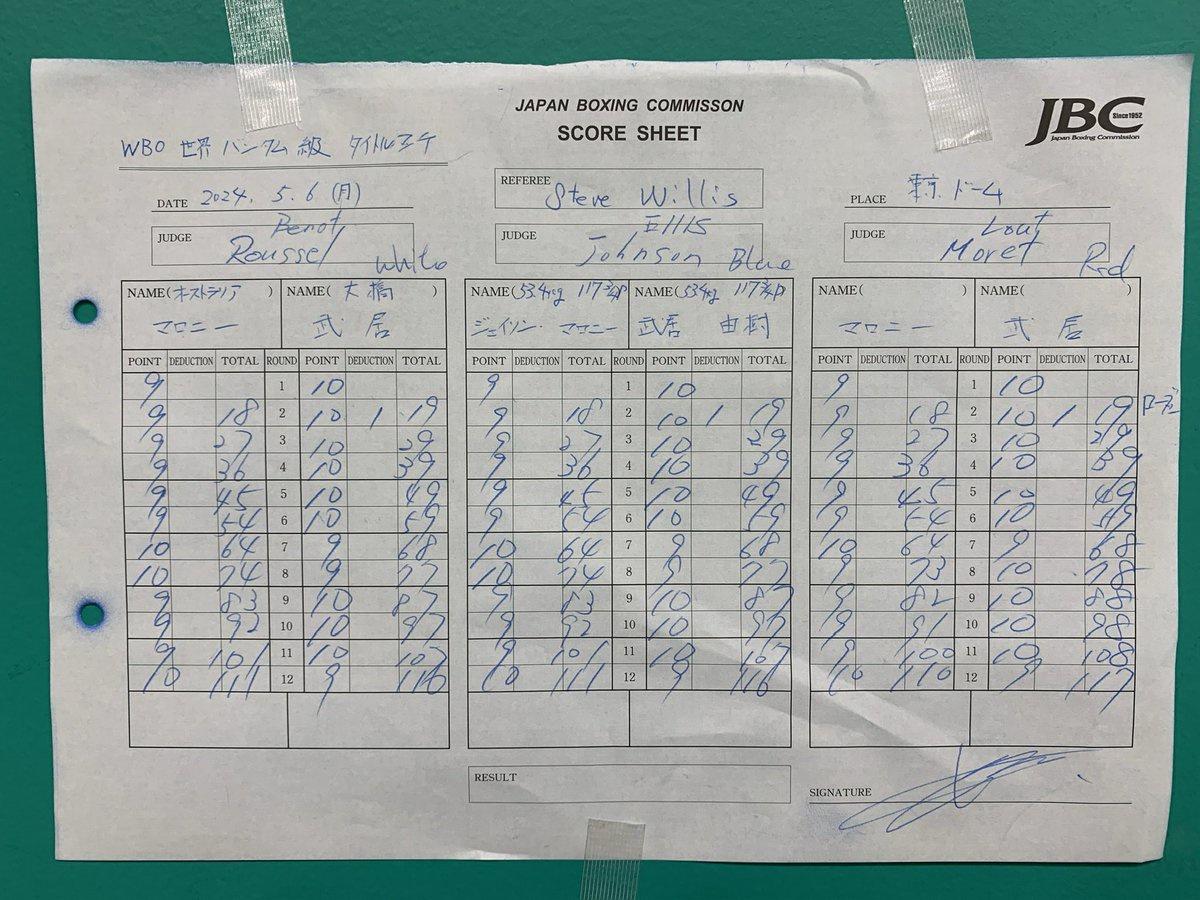 JAPAN BOXING COMMISSON
SCORE SHEET
JBC Since1952
Japan Boxing Commission
WBO 世界 バンタム 級 タイトルマチ
DATE 2024. 5. 6 (月)
REFEREE Steve Willis
PLACE 東京ドーム
JUDGE Benoit Roussel White
JUDGE Ellis Johnson Blue
JUDGE Lout Moret Red
NAME(オーストラリア) マロニー NAME(大橋) 武居
NAME(53.4kg 117 3/4P ジェイソン・マロニー NAME(53.4kg 117 3/4P 武居 由樹
NAME( ) マロニー NAME( ) 武居
POINT DEDUCTION TOTAL ROUND POINT DEDUCTION TOTAL POINT DEDUCTION TOTAL ROUND POINT DEDUCTION TOTAL POINT DEDUCTION TOTAL ROUND POINT DEDUCTION TOTAL
9 1 10 9 1 10 9 1 10
9 18 2 10 1 19 9 18 2 10 1 19 9 18 2 10 1 19
9 27 3 10 29 9 27 3 10 29 9 27 3 10 29
9 36 4 10 39 9 36 4 10 39 9 36 4 10 39
9 45 5 10 49 9 45 5 10 49 9 45 5 10 49
9 54 6 10 59 9 54 6 10 59 9 54 6 10 59
10 64 7 9 68 10 64 7 9 68 10 64 7 9 68
10 74 8 9 77 10 74 8 9 77 9 73 8 10 78
9 83 9 10 87 9 83 9 10 87 9 82 9 10 88
9 92 10 10 97 9 92 10 10 97 9 91 10 10 98
9 101 11 10 107 9 101 11 10 107 9 100 11 10 108
10 111 12 9 116 10 111 12 9 116 10 110 12 9 117
RESULT
SIGNATURE